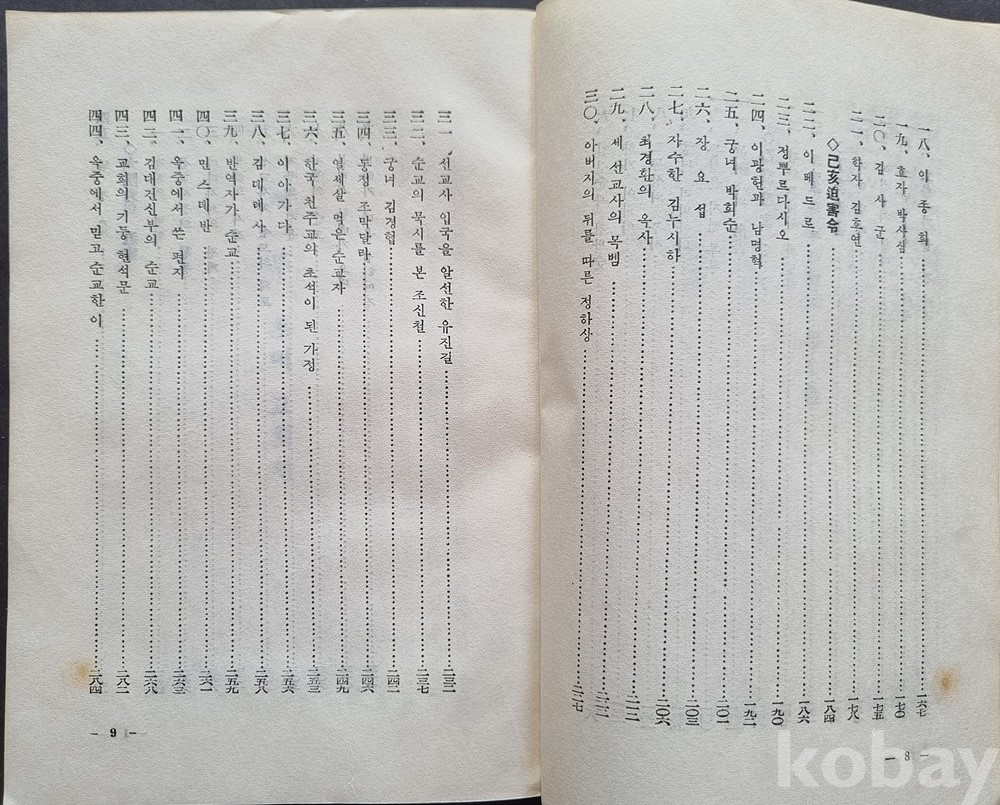 一八、이종회 一六七
一九、효자 박사심 一七〇
二〇、김사군 一七五
二一、학자 김호연 一七八
◇己亥迫害令 一八四
二二、이베드르 一八六
二三、정뿌르다시오 一九〇
二四、이광헌과 남명혁 一九二
二五、궁녀 박희순 二〇一
二六、장요섭 二〇三
二七、자수한 김누시아 二〇六
二八、최경환의 옥사 二一二
二九、세 선교사의 목벰
三〇、아버지의 뒤를 따른 정하상
— 8 —
三一、선교사 입국을 알선한 유진길 二三二
三二、순교의 묵시를 본 조신철 二三七
三三、궁녀 김경협 二四二
三四、동정 조막달라 二四六
三五、열세살 먹은 순교자 二四九
三六、한국 천주교의 초석이 된 가정 二五三
三七、이아가다 二五六
三八、김데레사 二五八
三九、반역자가 순교 二五九
四〇、민스데반 二六一
四一、옥중에서 쓴 편지 二六三
四二、김대건신부의 순교 二六八
四三、교회의 기둥 현석문 二八二
四四、옥중에서 믿고 순교한 이 二八四
— 9 —
kobay